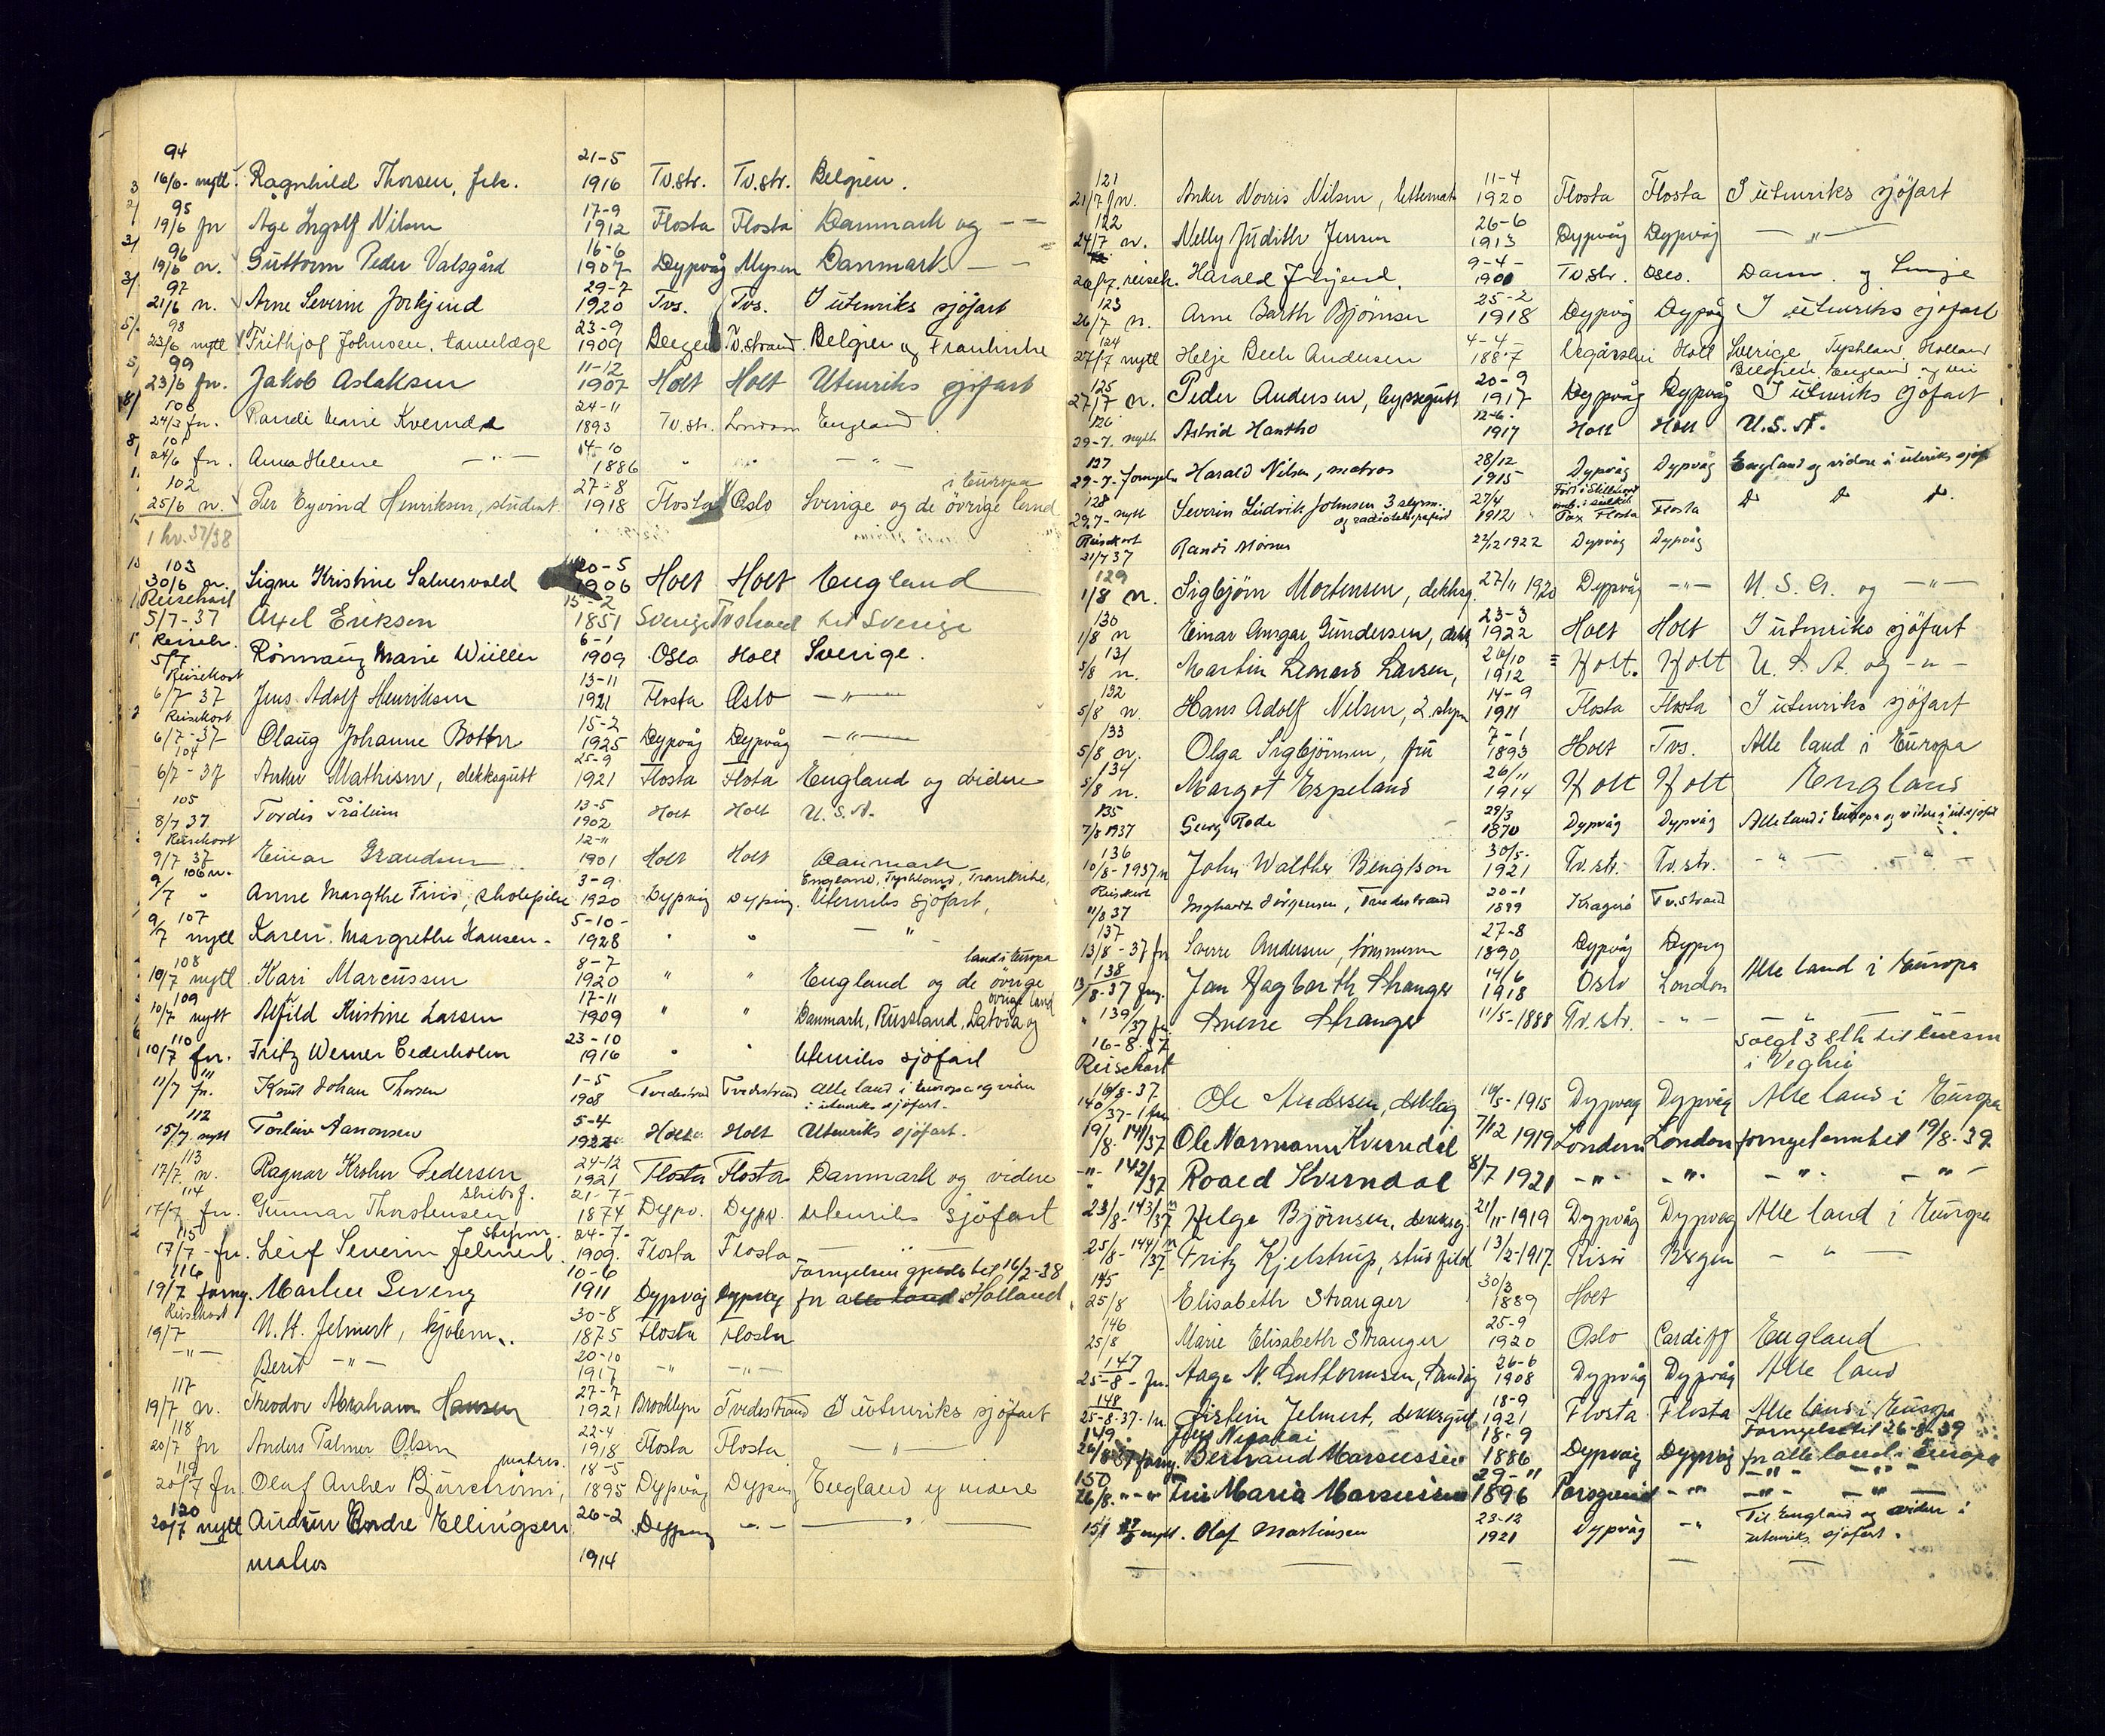 94
16/6 - nytt. Ragnhild Thorsen, frk. 21-5 1916 Tv.str. Tv.str. Belgien.
95
19/6 fn Åge Ingolf Nilsen 17-9 1912 Flosta Flosta Danmark og — —
96
19/6 n. Guttorm Peder Valsgård 16-6 1907 Dypvåg Mysen Danmark — —
97
21/6 n. Arne Severin Jorkjend 29-7 1920 Tvs. Tvs. I utenriks sjöfart
98
23/6 nytt Frithjof Johnsen, tannlæge 23-9 1909 Bergen Tv.strand. Belgien og Frankrike
99
23/6 fn. Jakob Aslaksen 11-12 1907 Holt Holt Utenriks sjöfart
100
24/3 fn. Randi Marie Kverndal 24-11 1893 Tv.str. London England
101
24/6 fn. Anna Helene — " — 14-10 1886 " " — " —
102
25/6 n. Per Eyvind Henriksen, student 27-8 1918 Flosta Oslo Sverige og de övrige land i Europa
1 hv. 37/38
103
30/6 n. Signe Kristine Salvesvold 20-5 1906 Holt Holt England
Reisekort
5/7-37 Axel Eriksen 15-2 1851 Sverige Tvstrand til Sverige
Reisek.
5/7 Rönnaug Marie Wüller 6-1 1909 Oslo Holt Sverige.
Reisekort
6/7 37 Jens Adolf Henriksen 13-11 1921 Flosta Oslo — " —
Reisekort
6/7-37 Olaug Johanne Botten 15-2 1925 Dypvåg Dypvåg — " —
104
6/7-37 Anker Mathisen, dekksgutt 25-9 1921 Flosta Flosta England og videre
105
8/7 37 Tordis Trålum 13-5 1902 Holt Holt U.S.A.
Reisekort
9/7 37 Einar Grandsen 12-11 1901 Holt Holt Danmark
106 n.
9/7 " Anne Margthe Friis, skolepike 3-9 1920 Dypvåg Dypvåg. England, Tyskland, Frankrike, Utenriks sjöfart,
107
9/7 nytt Karen Margrethe Hansen - 5-10- 1928 " " — " —
108
10/7 nytt Kari Marcussen 8-7 1920 " " England og de övrige land i Europa
109
10/7 nytt Alfild Kristine Larsen 17-11 1909 " " Danmark, Russland, Latvia og övrige land
110
10/7 fn. Fritz Werner Cederholm 23-10 1916 " " Utenriks sjöfart
111
11/7 fn. Knut Johan Thorsen 1-5 1908 Tvedestrand Tvedestrand Alle land i Europa og videre i utenriks sjöfart.
112
15/7 nytt Torleiv Aanonsen 5-4 1922 Holt Holt Utenriks sjöfart.
113
17/7 n. Ragnar Krohn Pedersen 24-12 1921 Flosta Flosta Danmark og videre
114
17/7 fn. Gunnar Thorstensen skibsf. 21-7- 1874 Dypv. Dypv. utenriks sjöfart
115
17/7 - fn. Leif Severin Jelmert styrm. 24-7- 1909. Flosta Flosta — " —
116
19/7 forny. 10-6 1911 Dypvåg Dypvåg Fornyelsen gjelds til 16/2-38 fn alle land Holland
Reisekort
19/7 N. H. Jelmert, kjölem.. 30-8 1875 Flosta Flosta
— " — Berit — " — 20-10 1917 — " — " —
117
19/7 n. Theodor Abraham Hansen 27-7 1921 Brooklyn Tvedestrand I utenriks sjöfart
118
20/7 fn Anders Palmer Olsen 22-4 1918 Flosta Flosta — " —
119
20/7 fn. Olaf Anker Bjurström, matros. 18-5 1895 Dypvåg Dypvåg England og videre
120
20/7 nytt Audun Endre Ellingsen 26-2 Dypvåg — " — — " —
matros 1914
121
21/7 fn. Anker Norris Nilsen, lettmat. 11-4 1920 Flosta Flosta I utenriks sjöfart
122
24/7 n. Nelly Judith Jensen 26-6 1913 Dypvåg Dypvåg — " —
reisek. Harald 9-4- 1900 Tv.str. Oslo. Danm. og
123
26/7 n. Arne Barth Björnsen 25-2 1918 Dypvåg Dypvåg I utenriks sjöfart
124
27/7 nytt Helje Bech Andersen 4-4- 1887 Vegårshei Holt Sverige, Tyskland, Holland Belgien, England og
125
27/7 n. Peder Andersen, byssegutt 20-9 1917 Dypvåg Dypvåg I utenriks sjöfart
126
29-7. nytt Astrid Hantho 12-6. 1917 Holt Holt U.S.A.
127
29-7. fornyels Harald Nilsen, matros 28/12 1915 Dypvåg Dypvåg England og videre i utenriks sjöf
128
29.7- nytt Severin Ludvik Johnsen 3 styrm. og radiotelegrafist 27/4 1912 Flosta Flosta
Reisekort
31/7 37 Randi Mörner 22/12 1922 Dypvåg Dypvåg
129
1/8 n. Sigbjörn Mortensen, dekksg. 27/11 1920 Dypvåg — " — U.S.A. og — " —
130
1/8 n Einar Ansgar Gundersen, dekk 23-3 1922 Holt Holt I utenriks sjöfart
131
5/8 n. Martin Lenard Larsen, 26/10 1912 Holt. Holt U.S.A. og - " -
132
5/8 n. Hans Adolf Nilsen, 2. styrm 14-9 1911 Flosta Flosta I utenriks sjöfart
133
5/8 n. Olga Sigbjörnsen, fru 7-1 1893 Holt Tvs. Alle land i Europa
134
5/8 n. Margot Espeland 26/11 1914 Holt Holt England
135
7/8 1937 Georg Rode 29/3 1870 Dypvåg Dypvåg Alle land i Europa og videre i utsjöfa
136
10/8-1937 n John Walther Bengtson 30/5- 1921 Tv.str. Tv.str. - " — - " -
Reisekort
11/8 37 Jörgensen, Tvedestrand 20-1 1899 Kragerö Tv.strand
137
13/8-37 fn Sverre Andersen, tömmerm 27-8 1890 Dypvåg Dypvåg
138
13/8-37 fny. Jan Hagbarth Stranger 14/6 1918 Oslo London Alle land i Europa
" 139/37 fn. Sverre Stranger 11/5-1888 Tv.str. - " -
16-8.37
Reisekort
i Veghei
16/8-37.
140/37-1 fn Ole Andersen, dekksg 16/5-1915 Dypvåg Dypvåg Alle land i Europa
19/8- 141/37 Ole Normann Kverndal 7/12 1919 London London fornyelsen til 19/8-39
- " - 142/37 Roald Kverndal 8/7 1921 - " - - " - - " - - " -
23/8- 143/37 n Helge Björnsen, dekksg 21/11-1919 Dypvåg Dypvåg Alle land i Europa
25/8- 144/37 n Fritz Kjelstrup, stud. filol 13/2-1917 Risör Bergen - " —
145
25/8 Elisabeth Stranger 30/3 1889 Holt
146
25/8 Marie Elisabeth Stranger 25-9 1920 Oslo Cardiff England
147
25-8 - fn. Aage N. Guttormsen, 26-6 1908 Dypvåg Dypvåg Alle land
148
25-8-37- 1n Öistein Jelmert, dekksgut 18-9 1921 Flosta Flosta Alle land i Europa
149. Jens Nicolai 18-9 Fornyelse til 26-8-39
26/8 37 forny. Bertrand Marcussen 1886 Dypvåg Dypvåg fn alle land i Europa
150 29-11 - " - - " -
26/8. " - " Fru Maria Marcussen 1896 Porsgrund - " - - " - - " -
151 nytt. Olaf Martinsen 23-12 1921 Dypvåg - " Til England og videre i utenriks sjöfart.